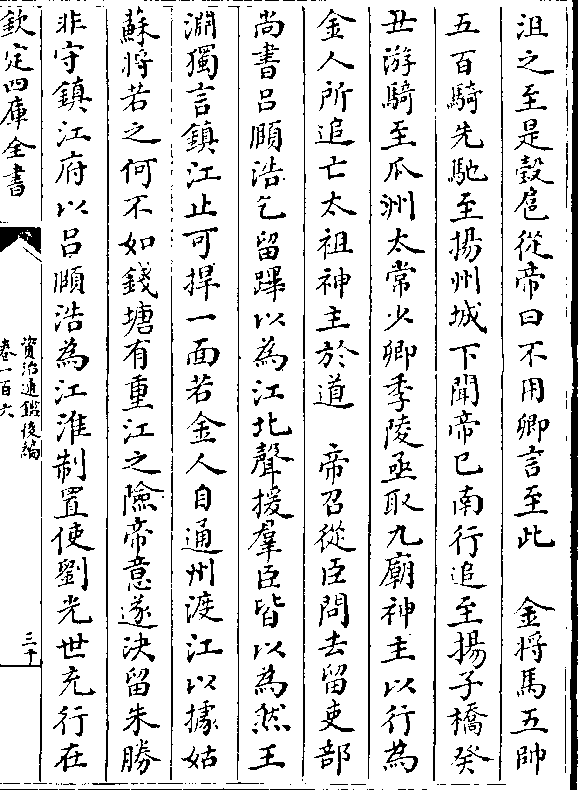 沮之至是瑴扈從帝曰不用卿言至此　金將馬五帥
五百騎先馳至揚州城下聞帝已南行追至揚子橋癸
丑游騎至瓜洲太常少卿季陵亟取九廟神主以行為
金人所追亡太祖神主於道　帝召從臣問去留吏部
尚書吕頤浩乞留蹕以為江北聲援羣臣皆以為然王
淵獨言鎮江止可捍一面若金人自通州渡江以據姑
蘇將若之何不如錢塘有重江之險帝意遂決留朱勝
非守鎮江府以吕頤浩為江淮制置使劉光世充行在
欽定四庫全書
資治通鑑後編
卷一百六
三十